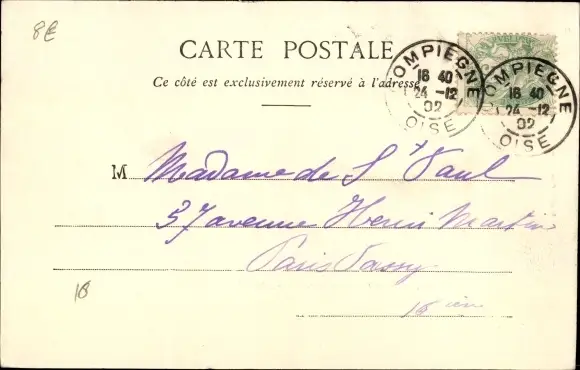 8E
CARTE POSTALE
Ce côté est exclusivement réservé à l'adresse
COMPIÈGNE
16 40
24 -12
02
OISE
COMPIÈGNE
16 40
24 -12
02
OISE
M Madame de St Paul
37 avenue Henri Martin
Paris Passy
16 ième